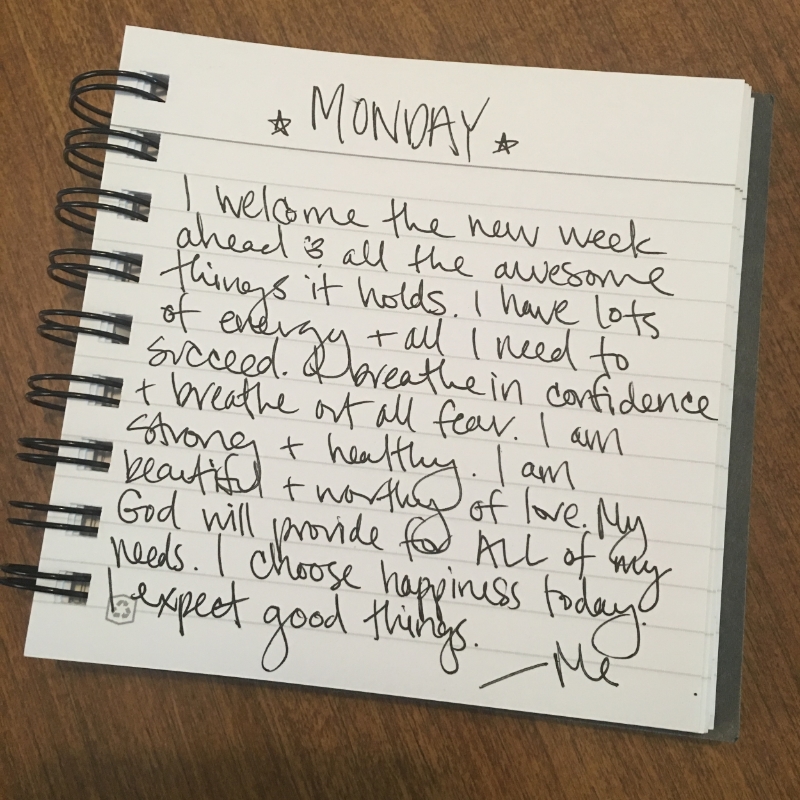 ☆ MONDAY ☆
I welcome the new week
ahead & all the awesome
things it holds. I have lots
of energy + all I need to
succeed. I breathe in confidence
+ breathe out all fear. I am
strong + healthy. I am
beautiful + worthy of love. My
God will provide for ALL of my
needs. I choose happiness today.
I expect good things.
— Me